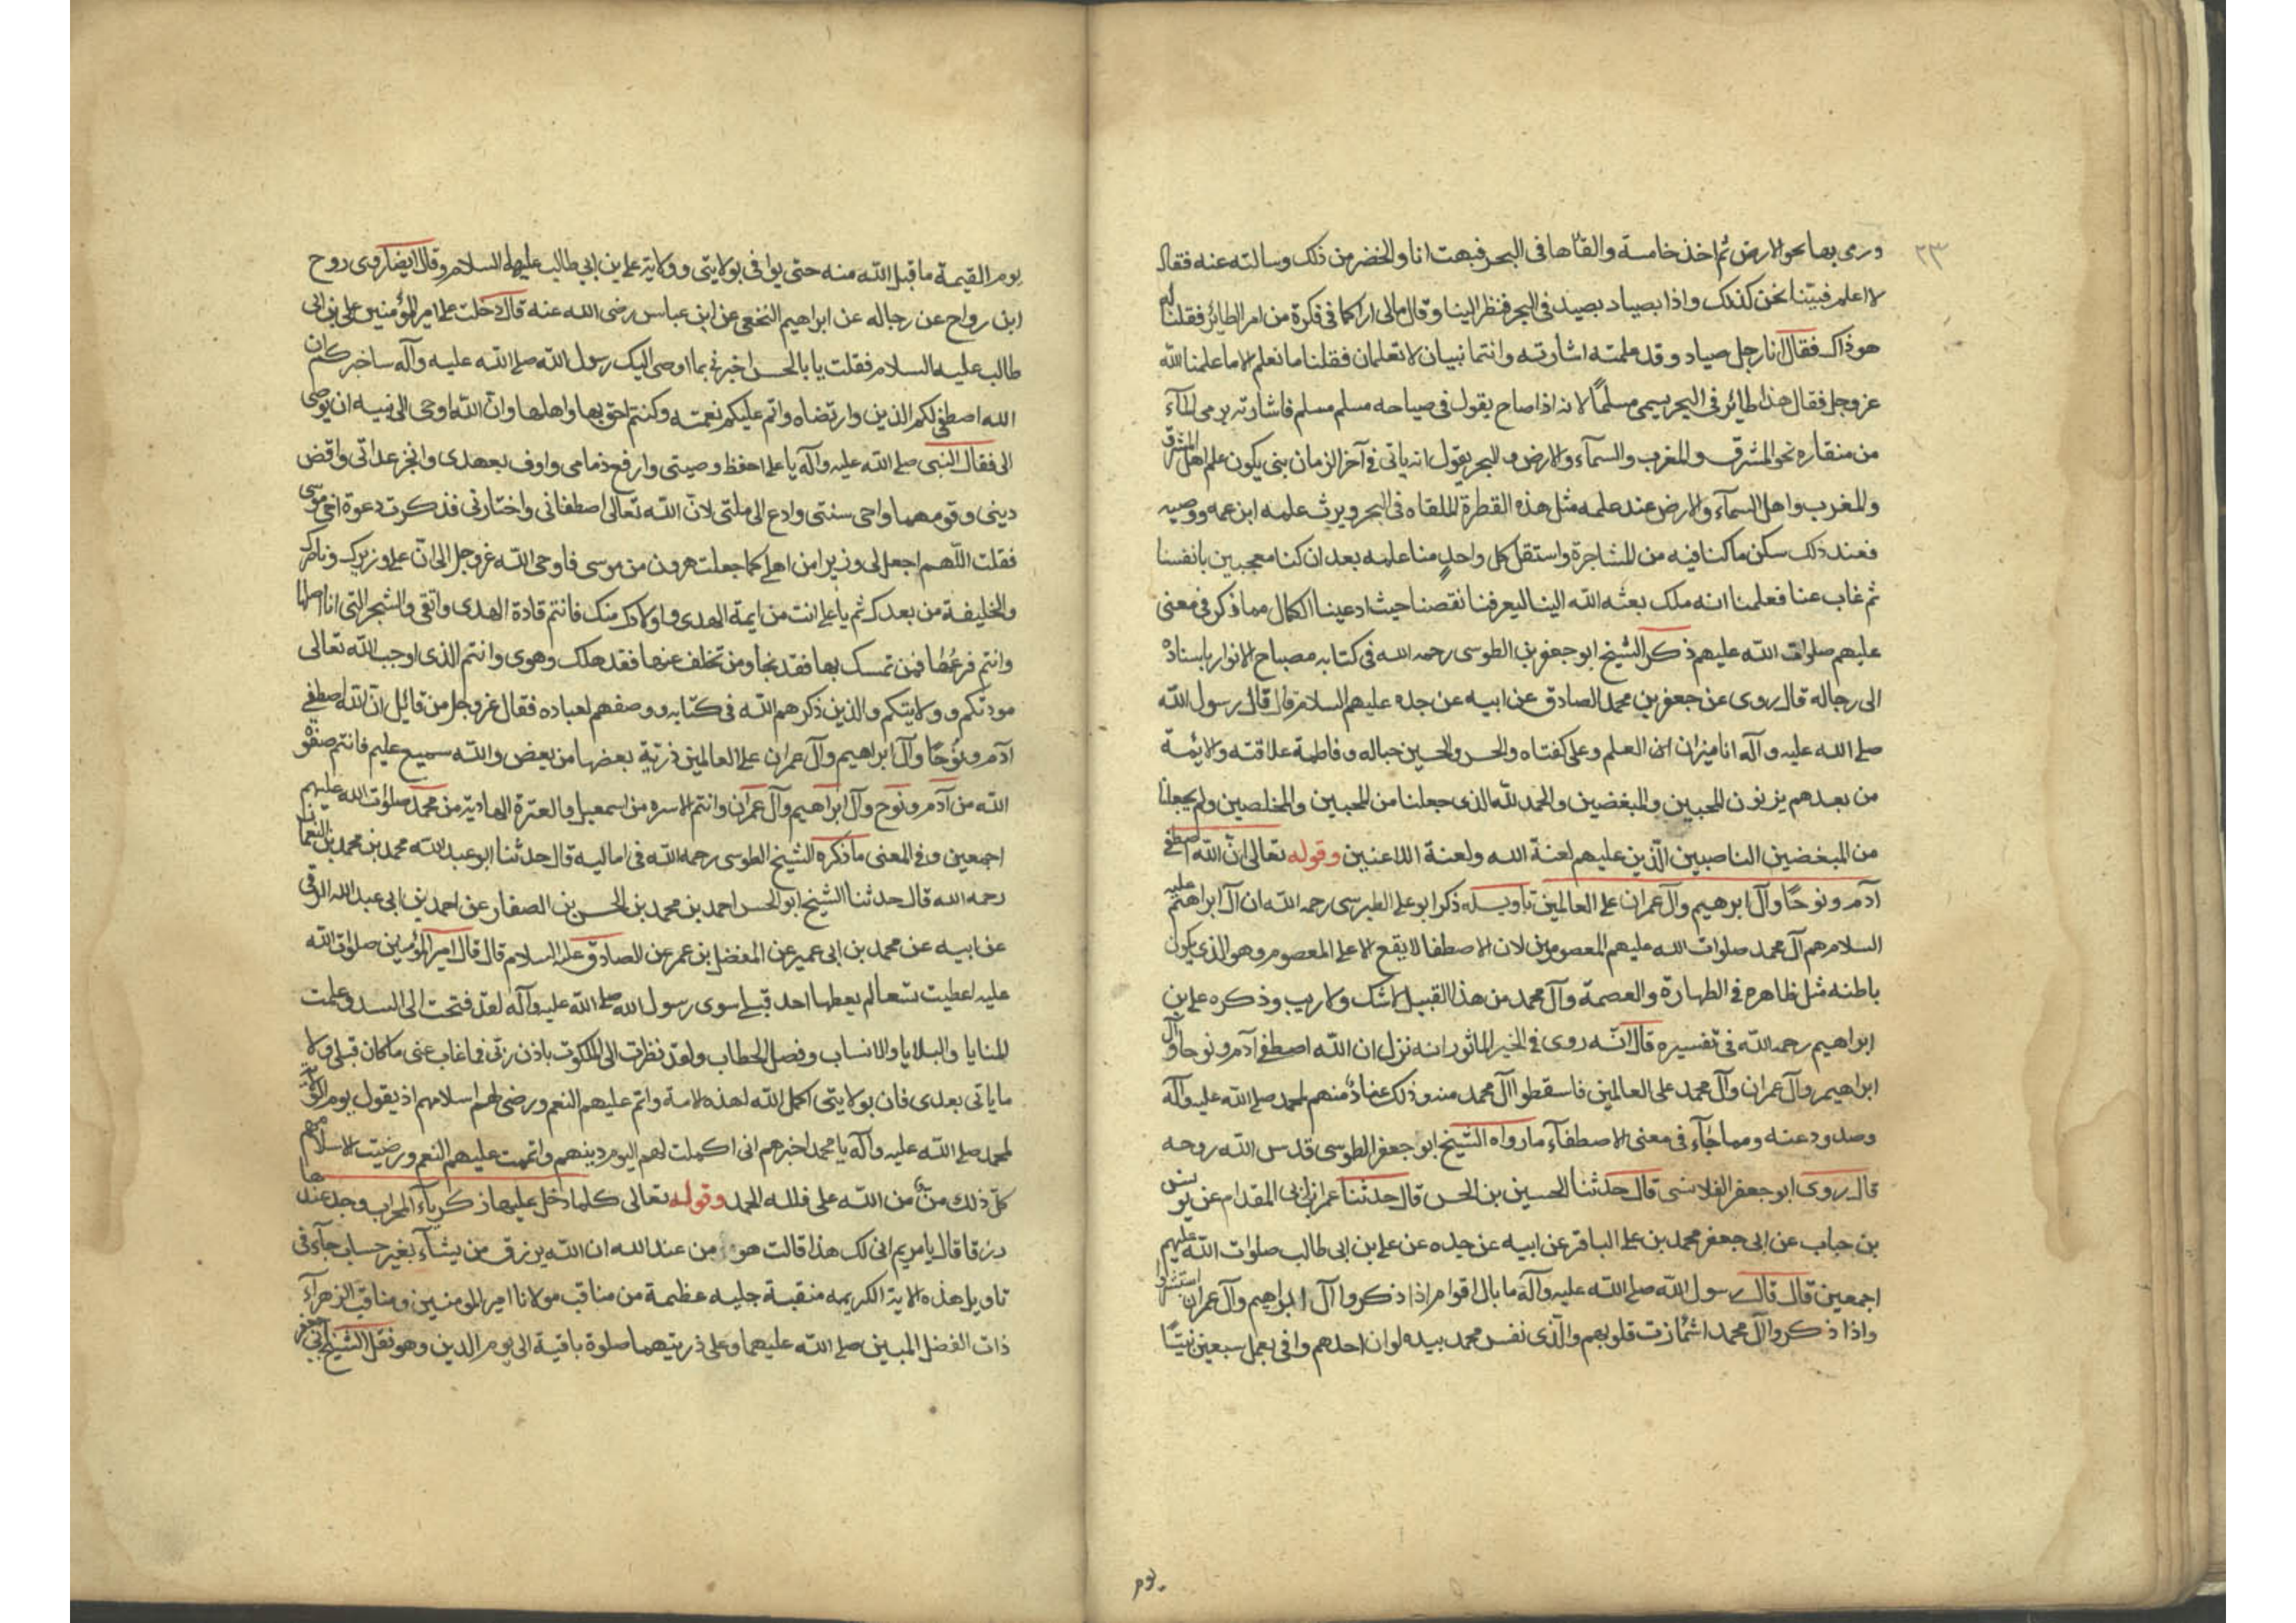 ٢٣
ورمى بها نحو الارض ثم اخذ خامسة والقاها فى البحر فبهت انا والخضر من ذلك وسالته عنه فقال
لا اعلم فبيتنا نحن كذلك واذا بصياد يصيد فى البحر فنظر الينا وقال مالى اراكما فى فكرة من امر الطائر فقلنا له
هو ذاك فقال انا رجل صياد وقد علمت اشارته وانتما نبيان لا تعلمان فقلنا ما نعلم الا ما علمنا الله
عز وجل فقال هذا طائر فى البحر يسمى مسلما لانه اذا صاح يقول فى صياحه مسلم مسلم فاشارته برمى الماء
من منقاره نحو المشرق والمغرب والسمآء والارض والبحر يقول انه ياتى فى آخر الزمان نبى يكون علم اهل المشرق
والمغرب واهل السمآء والارض عند علمه مثل هذه القطرة الملقاه فى البحر ويرث علمه ابن عمه ووصيه
فعند ذلك سكن ما كنا فيه من المشاجرة واستقل كل واحد منا علمه بعد ان كنا معجبين بانفسنا
ثم غاب عنا فعلمنا انه ملك بعثه الله الينا ليعرفنا نقصنا حيث ادعينا الكمال مما ذكر فى معنى
عليهم صلوات الله عليهم ذكر الشيخ ابو جعفر بن الطوسى رحمه الله فى كتابه مصباح الانوار باسناده
الى رجاله قال روى عن جعفر بن محمد الصادق عن ابيه عن جده عليهم السلام قال قال رسول الله
صلى الله عليه وآله انا ميزان العلم وعلى كفتاه والحسن والحسين حباله وفاطمة علاقته والائمة
من بعدهم يزنون المحبين والمبغضين والحمد لله الذى جعلنا من المحبين والمخلصين ولم يجعلنا
من المبغضين الناصبين الذين عليهم لعنة الله ولعنة اللاعنين وقوله تعالى ان الله اصطفى
آدم ونوحا وآل ابرهيم وآل عمران على العالمين تاويله ذكر ابو على الطبرسى رحمه الله ان آل ابراهيم عليه
السلام هم آل محمد صلوات الله عليهم المعصومين لان الاصطفا لا يقع الا على المعصوم وهو الذى يكون
باطنه مثل ظاهره فى الطهارة والعصمة وآل محمد من هذا القبيل لا شك ولا ريب وذكره على بن
ابراهيم رحمه الله فى تفسيره قال انه روى فى الخبر الماثور انه نزل ان الله اصطفى آدم ونوحا وآل
ابراهيم وآل عمران وآل محمد على العالمين فاسقطوا آل محمد منه وذلك عنادا منهم لمحمد صلى الله عليه وآله
وصدود عنه ومما جآء فى معنى الاصطفآء ما رواه الشيخ ابو جعفر الطوسى قدس الله روحه
قال روى ابو جعفر القلانسى قال حدثنا الحسين بن الحسن قال حدثنا عمرا بن ابى المقدام عن يونس
بن حباب عن ابى جعفر محمد بن على الباقر عن ابيه عن جده عن على بن ابى طالب صلوات الله عليهم
اجمعين قال قال رسول الله صلى الله عليه وآله ما بال اقوام اذا ذكروا آل ابراهيم وآل عمران استبشروا
واذا ذكروا آل محمد اشمازت قلوبهم والذى نفس محمد بيده لو ان احدهم وافى بعمل سبعين نبيا
يوم
يوم القيمة ما قبل الله منه حتى يوافى بولايتى وولاية على بن ابى طالب عليه السلام وقال ايضا روى روح
ابن رواح عن رجاله عن ابراهيم النخعى عن ابن عباس رضى الله عنه قال دخلت على امير المؤمنين على بن ابى
طالب عليه السلام فقلت يا بالحسن اخبرنى بما اوصى اليك رسول الله صلى الله عليه وآله ساخبركم ان
الله اصطفى لكم الدين وارتضاه واتم عليكم نعمته وكنتم احق بها واهلها وان الله اوحى الى نبيه ان يوصى
الى فقال النبى صلى الله عليه وآله يا على احفظ وصيتى وارفع ذمامى واوف بعهدى وانجز عداتى واقض
دينى وقومها واحى سنتى وادع الى ملتى لان الله تعالى اصطفانى واختارنى فذكرت دعوة اخى موسى
فقلت اللهم اجعل لى وزيرا من اهلى كما جعلت هرون من موسى فاوحى الله عز وجل الى ان على وزيرك وناصرك
والخليفة من بعدك ثم يا على انت من ايمة الهدى واولادك منك فانتم قادة الهدى والتقى والشجر التى انا اصلها
وانتم فرعها فمن تمسك بها فقد نجا ومن تخلف عنها فقد هلك وهوى وانتم الذى اوجب الله تعالى
مودتكم وولايتكم والذين ذكرهم الله فى كتابه ووصفهم لعباده فقال عز وجل من قائل ان الله اصطفى
آدم ونوحا وآل ابراهيم وآل عمران على العالمين ذرية بعضها من بعض والله سميع عليم فانتم صفوة
الله من آدم ونوح وآل ابراهيم وآل عمران وانتم الاسره من اسمعيل والعترة الهادية من محمد صلوات الله عليهم
اجمعين وفى المعنى ما ذكره الشيخ الطوسى رحمه الله فى اماليه قال حدثنا ابو عبد الله محمد بن محمد بن النعمان
رحمه الله قال حدثنا الشيخ ابو الحسن احمد بن محمد بن الحسن بن الصفار عن احمد بن ابى عبد الله البرقى
عن ابيه عن محمد بن ابى عمير عن المفضل بن عمر عن الصادق عليه السلام قال قال امير المؤمنين صلوات الله
عليه اعطيت تسعا لم يعطها احد قبلى سوى رسول الله صلى الله عليه وآله لقد فتحت الى السبل وعلمت
المنايا والبلايا والانساب وفصل الخطاب ولقد نظرت الى الملكوت باذن ربى فما غاب عنى ما كان قبلى ولا
ما ياتى بعدى فان بولايتى اكمل الله لهذه الامة واتم عليهم النعم ورضى لهم اسلامهم اذ يقول يوم الولاية
لمحمد صلى الله عليه وآله يا محمد اخبرهم انى اكملت لهم اليوم دينهم واتممت عليهم النعم ورضيت الاسلام لهم
كل ذلك من من الله على فلله الحمد وقوله تعالى كلما دخل عليها زكريآء المحراب وجد عندها
رزقا قال يا مريم انى لك هذا قالت هو من عند الله ان الله يرزق من يشآء بغير حساب جآء فى
تاويل هذه الاية الكريمه منقبة جليه عظيمة من مناقب مولانا امير المومنين ومناقب الزهرآء
ذات الفضل المبين صلى الله عليهما وعلى ذريتهما صلوة باقية الى يوم الدين وهو نقل الشيخ ابى جعفر